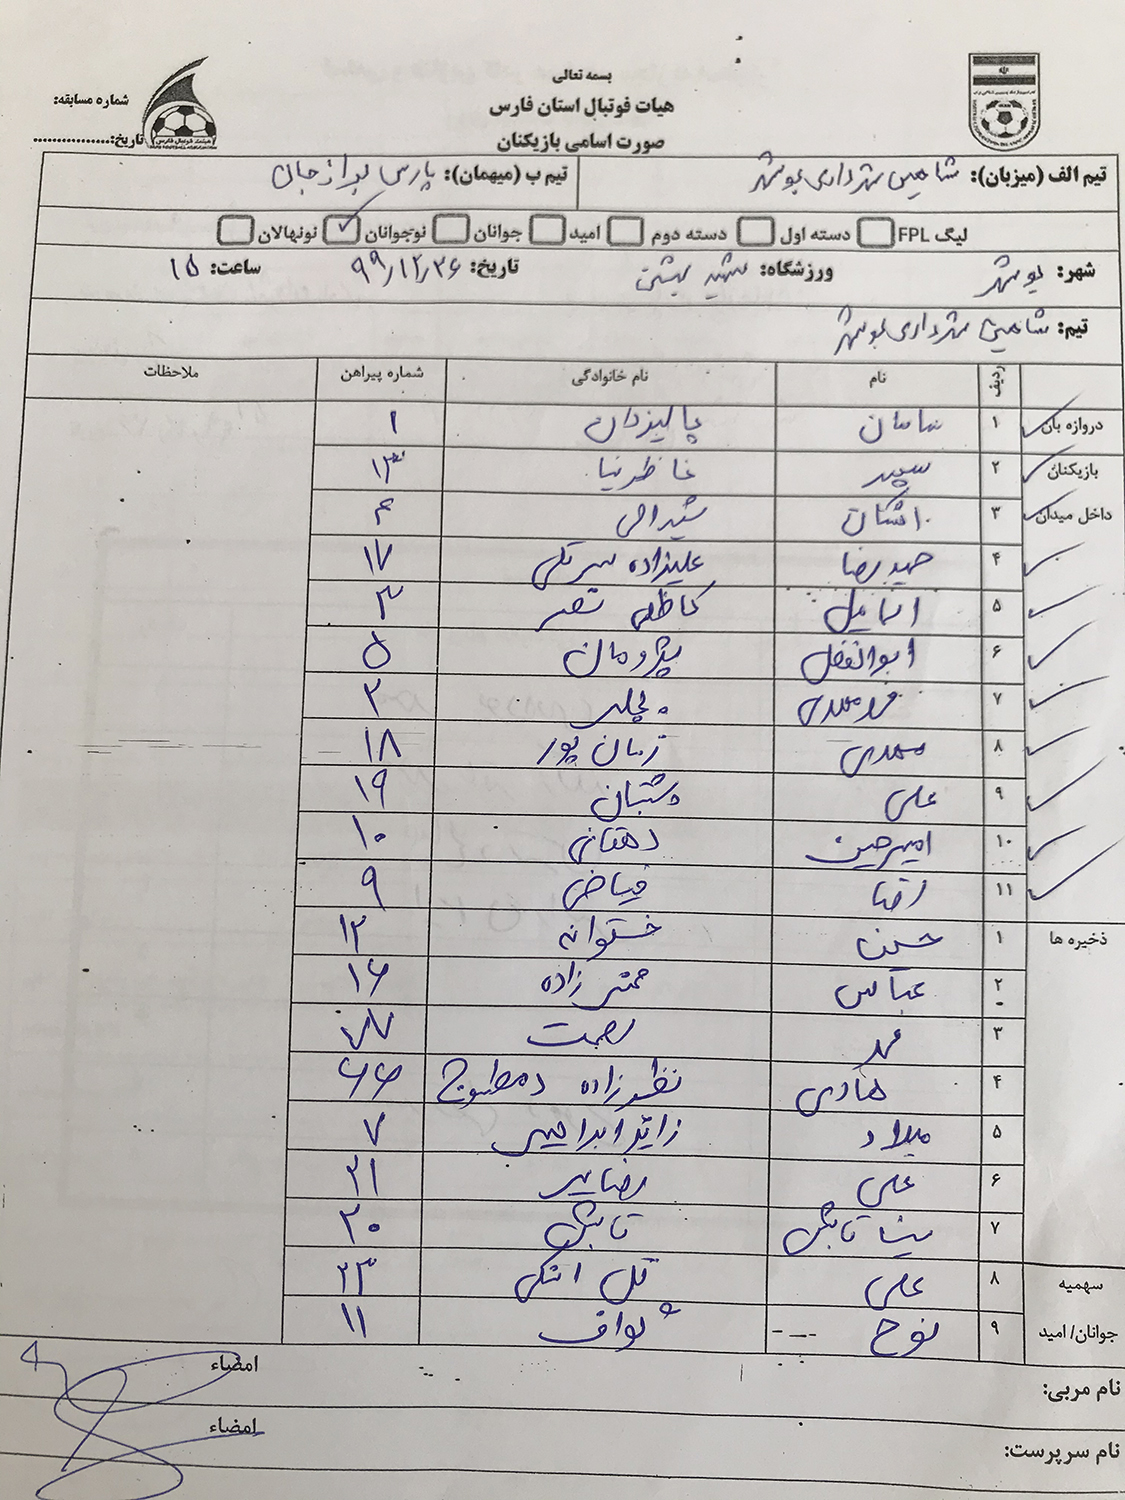 بسمه تعالی
هیات فوتبال استان فارس
صورت اسامی بازیکنان
شماره مسابقه:
تاریخ:................
تیم الف (میزبان): شاهین شهرداری بوشهر تیم ب (میهمان): پارس برازجان
لیگ FPL دسته اول دسته دوم امید جوانان نوجوانان ✓ نونهالان
شهر: بوشهر ورزشگاه: شهید بهشتی تاریخ: ۹۹/۱۲/۲۶ ساعت: ۱۵
تیم: شاهین شهرداری بوشهر
ردیف نام نام خانوادگی شماره پیراهن ملاحظات
دروازه بان ۱ سامان چالیزدان ۱
بازیکنان ۲ سپهر ۱۳
داخل میدان ۳ اشکان ۴
۴ حمیدرضا علیزاده سرتلی ۱۷
۵ کاظمی ۳
۶ ابوالفضل پژومان ۵
۷ ۲
۸ مهدی زمان پور ۱۸
۹ علی پشتبان ۱۹
۱۰ امیرحسین دهقانی ۱۰
۱۱ رضا فیاض ۹
ذخیره ها ۱ حسین خستوانه ۱۲
۲ عباس زاده ۱۶
۳ محمد
۴ هادی نظرزاده ۶۶
۵ میلاد زائرابراهیمی ۷
۶ علی رضایی ۲۱
۷ تابش ۲۰
سهمیه ۸ علی ۲۳
جوانان/ امید ۹ نوح ۱۱
نام مربی: امضاء
نام سرپرست: امضاء